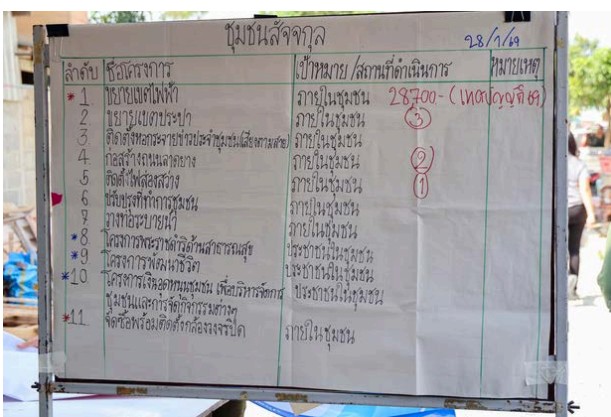 ชุมชนสัจจกุล
28/1/69
ลำดับ ชื่อโครงการ เป้าหมาย/สถานที่ดำเนินการ หมายเหตุ
* 1 ขยายเขตไฟฟ้า ภายในชุมชน 28700-
2 ขยายเขตประปา ภายในชุมชน 3
3 ติดตั้งหอกระจายข่าวประจำชุมชน(เสียงตามสาย) ภายในชุมชน
4 ก่อสร้างถนนลาดยาง ภายในชุมชน 2
5 ติดตั้งไฟส่องสว่าง ภายในชุมชน 1
6 ปรับปรุงที่ทำการชุมชน ภายในชุมชน
7 วางท่อระบายน้ำ ภายในชุมชน
*8 โครงการพระราชดำริด้านสาธารณสุข ประชาชนในชุมชน
*9 โครงการพัฒนาชีวิต ประชาชนในชุมชน
*10 โครงการเงินอุดหนุนชุมชน เพื่อบริหารจัดการ ประชาชนในชุมชน
ชุมชนและการจัดกิจกรรมต่างๆ
*11 จัดซื้อพร้อมติดตั้งกล้องวงจรปิด ภายในชุมชน